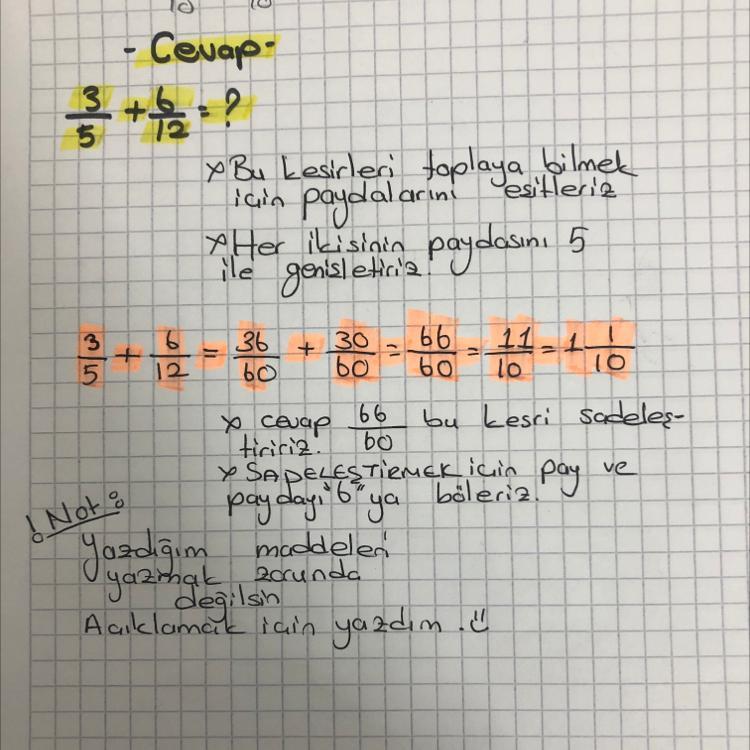 10 10
- Cevap -
3/5 + 6/12 = ?
× Bu kesirleri toplaya bilmek
için paydalarını esitleriz
× Her ikisinin paydasını 5
ile genisletiriz.
3/5 + 6/12 = 36/60 + 30/60 = 66/60 = 11/10 = 1 1/10
× cevap 66/60 bu kesri sadeleş-
tiririz.
× SADELEŞTİRMEK için pay ve
paydayı "6" ya böleriz.
! Not:
Yazdığım maddeleri
yazmak zorunda
değilsin
Acıklamak için yazdım. Ü